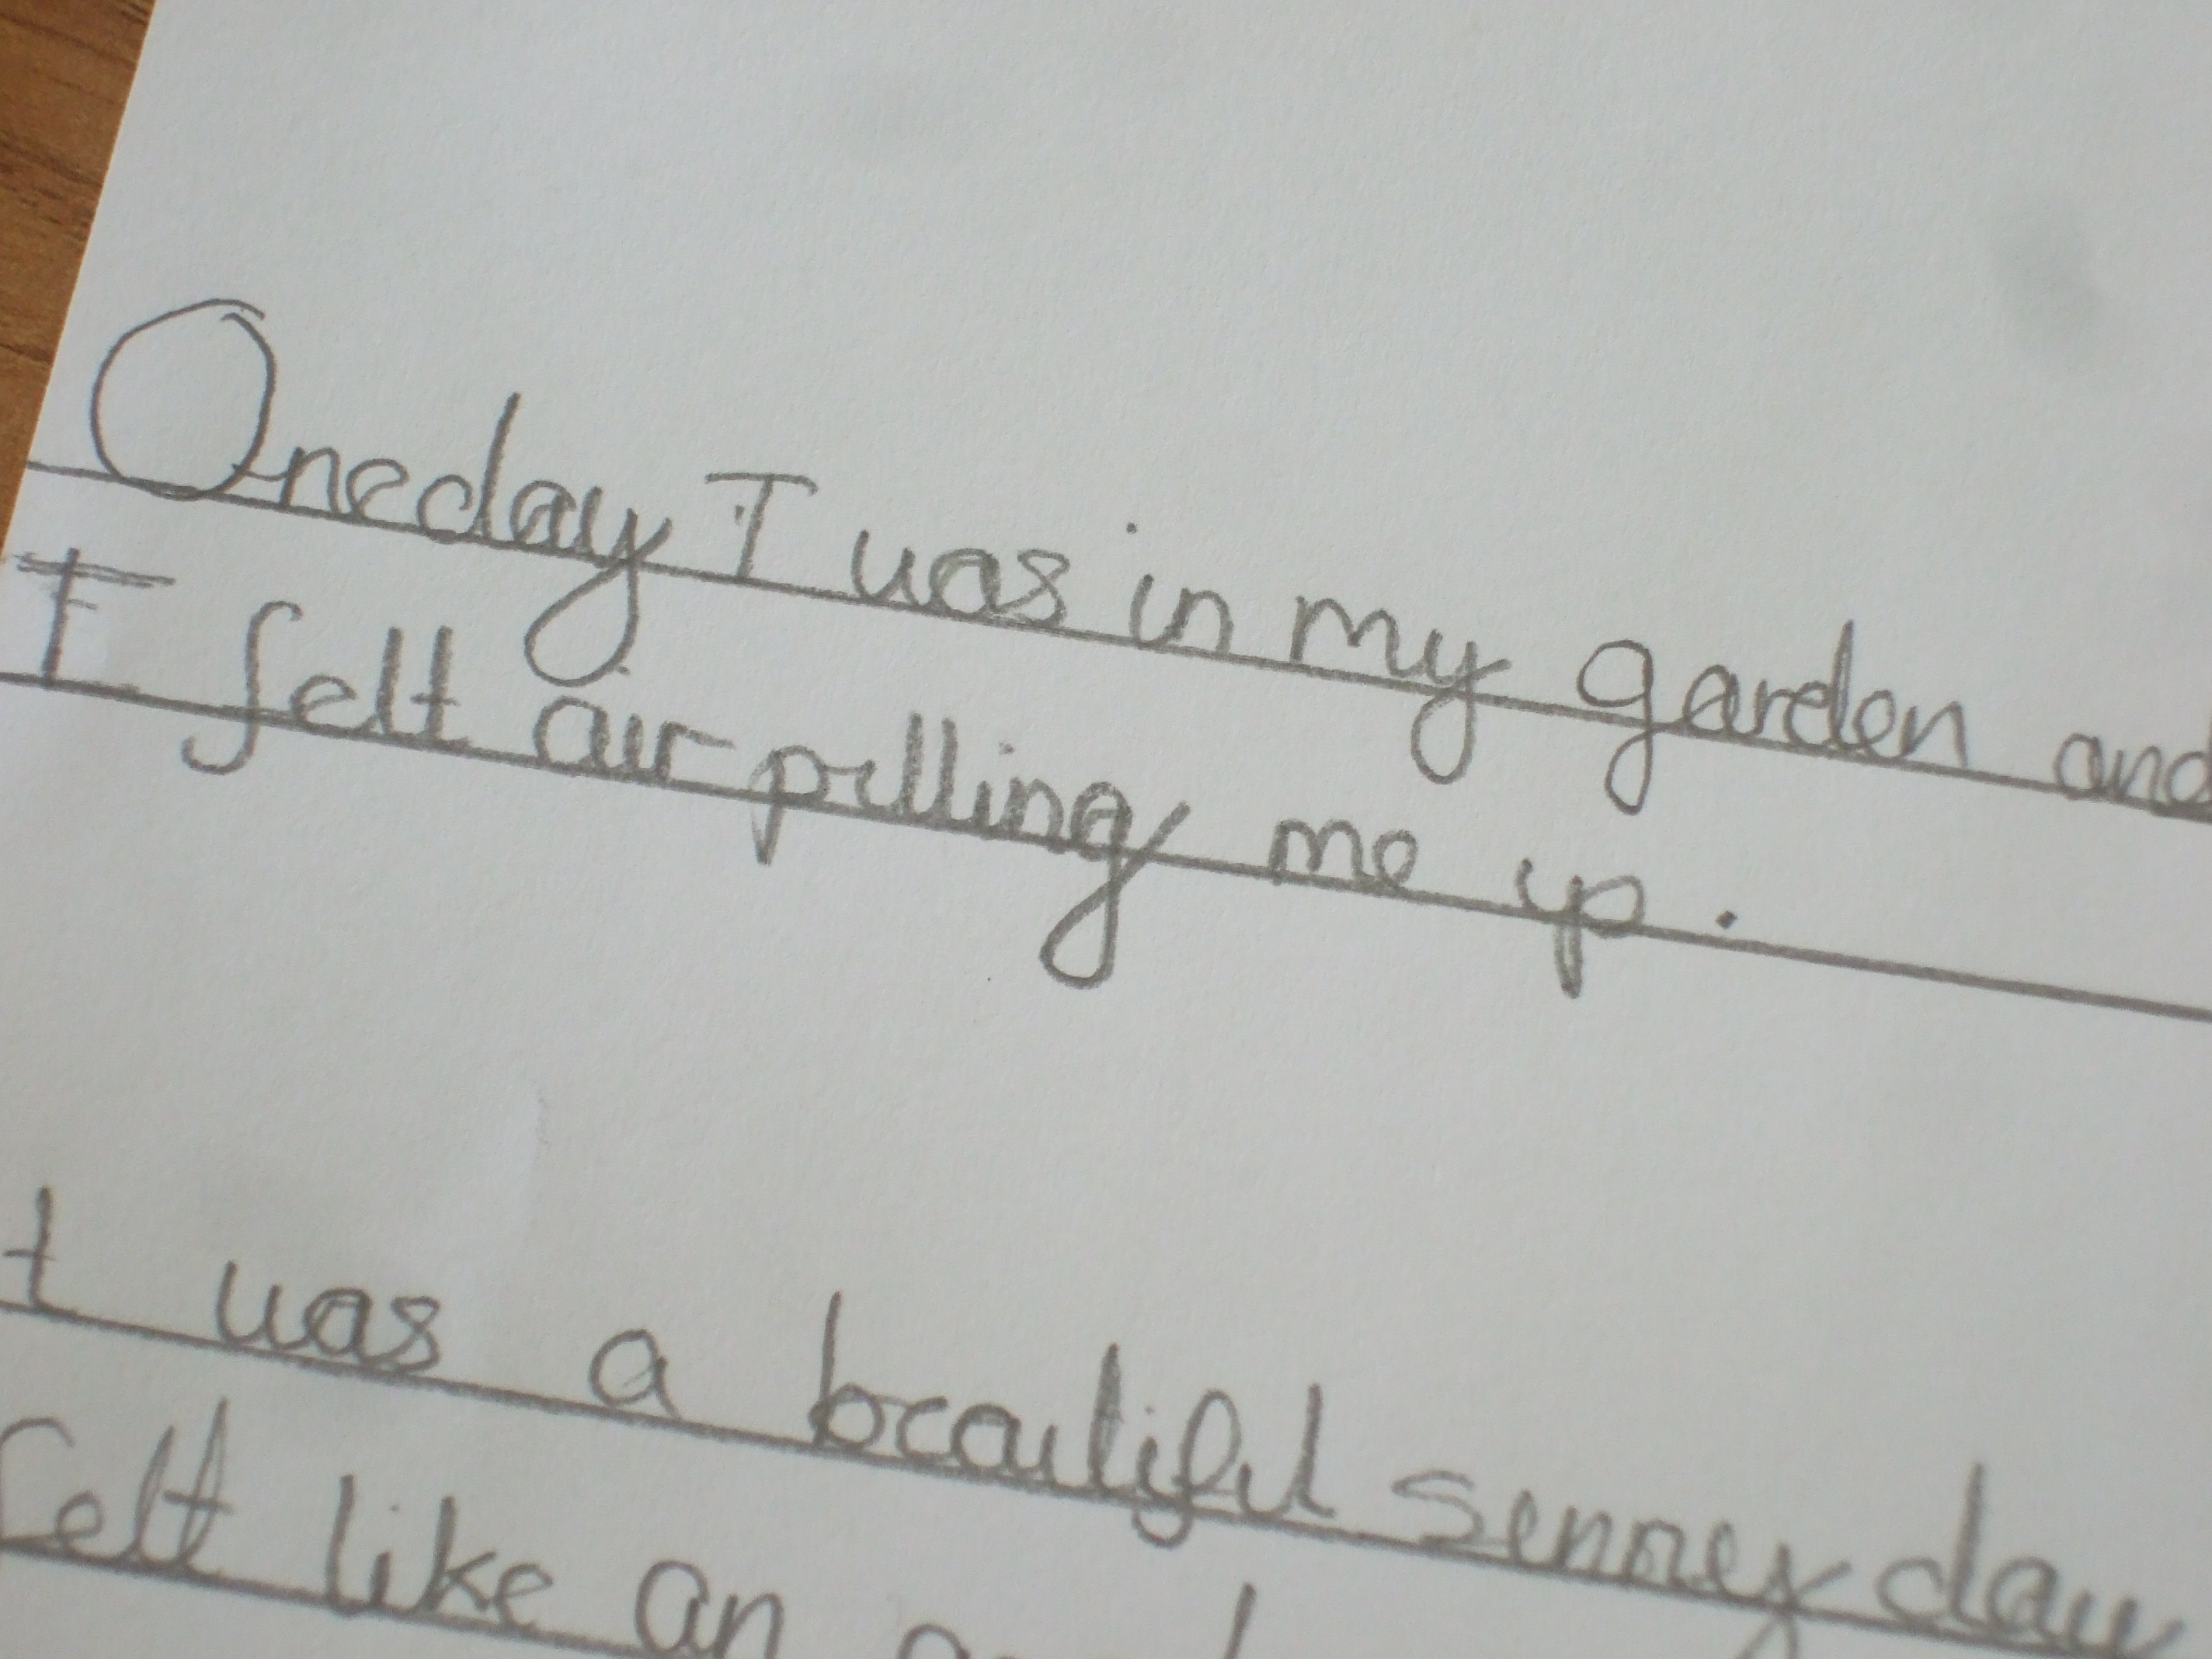 Oneday I was in my garden and
I felt air pulling me up.
t was a beautiful sunney day
felt like an